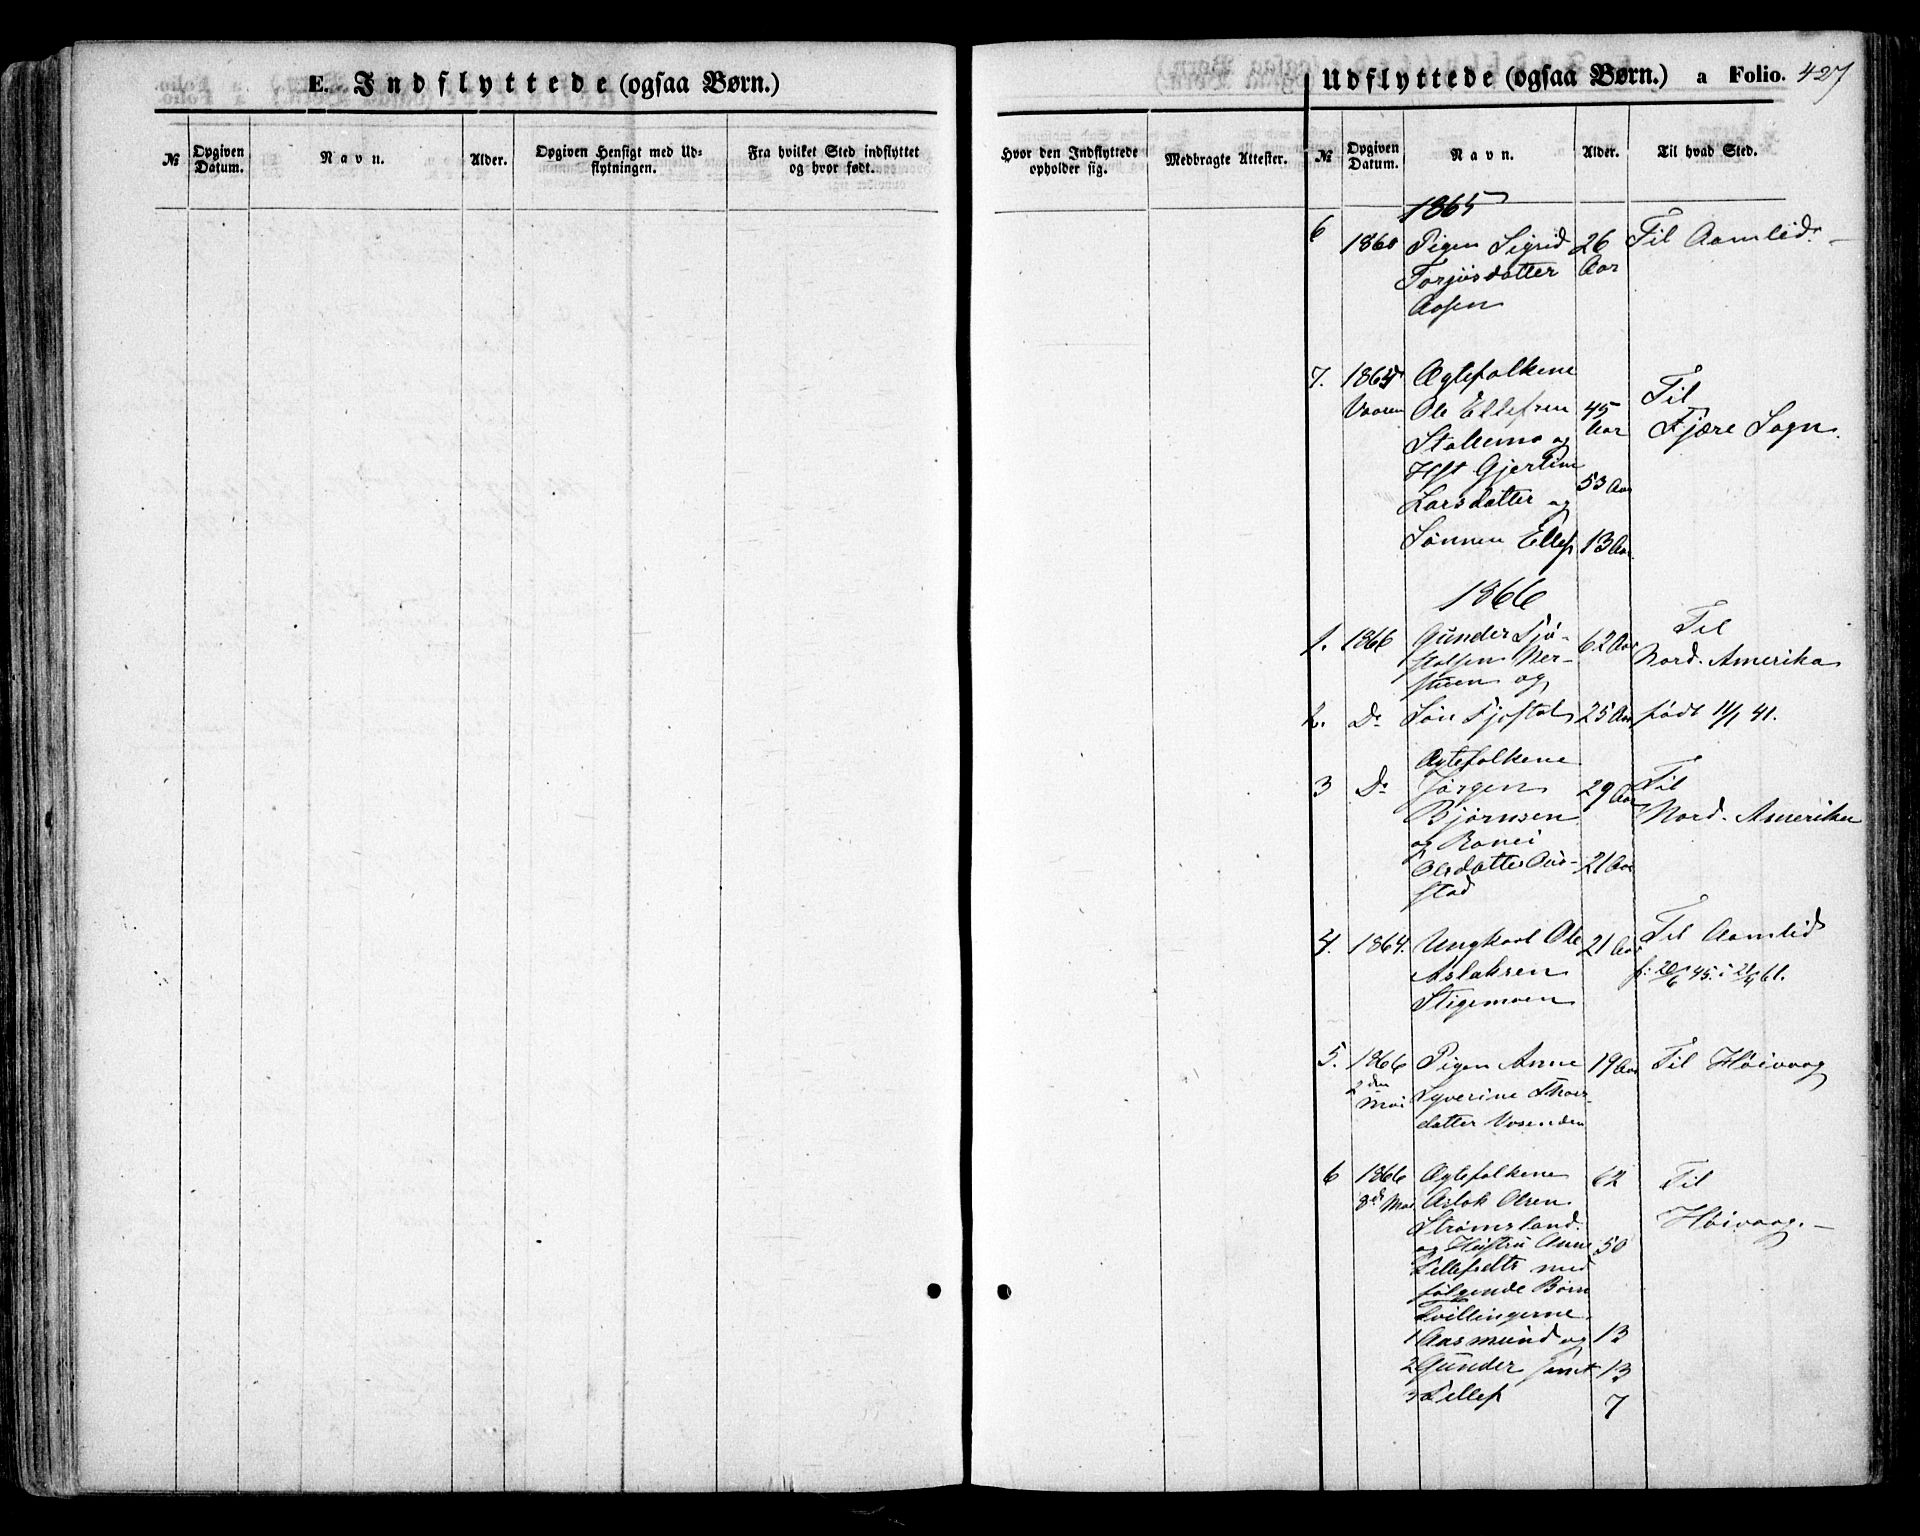 E. Indflyttede (ogsaa Børn.)
Udflyttede (ogsaa Børn.) a Folio. 427
№
Opgiven Datum.
Navn.
Alder.
Opgiven Hensigt med Ud-
flytningen.
Fra hvilket Sted indflyttet
og hvor født.
Hvor den Indflyttede
opholder sig.
Medbragte Attester.
№
Opgiven Datum.
Navn.
Alder.
Til hvad Sted.
1865
6 1860 Pigen Sigrid 26 Til Aamlid.
Torjusdatter Aar
Aasen
7. 1865 Ægtefolkene
Vaaren Ole Ellefsen 45 Aar Til
Stallemo og Fjære Sogn.
Hst Gjertine 53 Aar
Larsdatter og
Sønnen Ellef 13 Aar
1866
1. 1866 Gunder Fjø- 62 Aar Til
stolsen Ner- Nord. Amerika
stuen og
2. Do Søn Fjøstol 25 Aar født 11/1 41.
Ægtefolkene
3 Do Jørgen 29 Aar Til
Bjørnsen Nord. Amerika
og
Olsdatter 21 Aar
stad
4. 1864. Ungkarl Ole 21 Aar Til Aamlid
Aslaksen f: 20/6 45. i 21/4 61.
Stigemoen
5. 1866 Pigen Anne 19 Aar Til Høivaag
2den Mai Syverine Thor-
datter Vosenden
6 1866 Ægtefolkene 62 Til
8de Mai Aslak Olsen Høivaag.
Strømsland.
og Hustru Anne 50
med
følgende Børn
Tvillingerne
1 Aasmund og 13
2 Gunder samt 13
3 Tellef 7